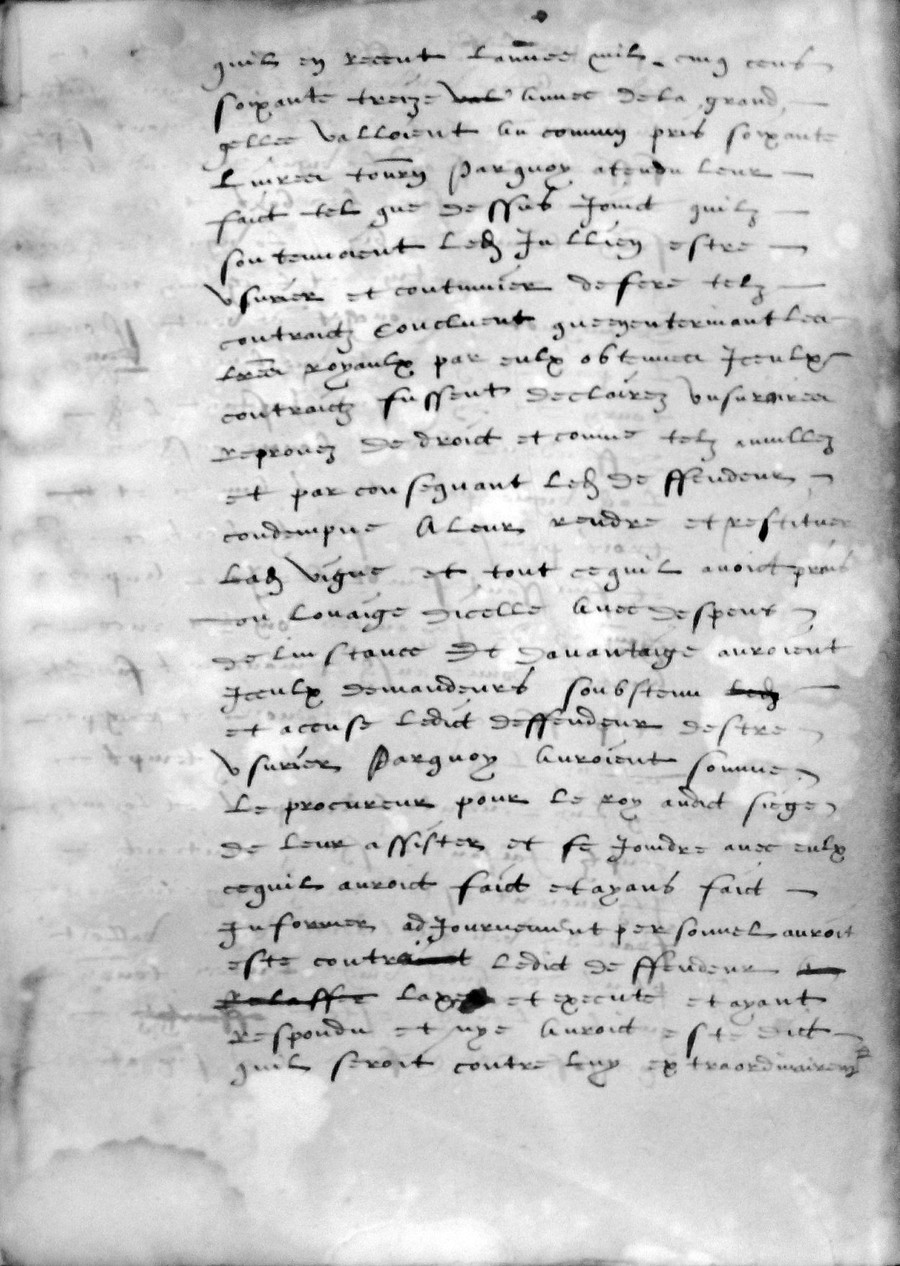 quil en receut lannee mil cinq cens
soixante treize val avec de la grand
gellee valloient au commun pris soixante
livres tourn Parquoy atendu leur
faict tel que dessus joinct quilz
soutennoient led Jullien estre
usurier et coutumier de fere telz
contractz concluent que en enterinant les
lres royaulx par eulx obtenues jceulx
contractz fussent declairez usuraires
reprouvez de droict et comme telz anullez
et par consequant led deffendeur
condempne a leur rendre et restituer
lad vigne et tout ce quil avoict prins
ou louaige dicelle avec despens
de linstance Et davantaige auroient
jceulx demandeurs soubstenu led
et accuse ledict deffendeur destre
usurier Parquoy auroient somme
le procureur pour le roy audict siege
de leur assister et se joindre avec eulx
ce quil auroict faict et ayans faict
jnformer adjournement personnel auroit
este contre ledict deffendeur
laxe et execute et ayant
respondu et nye auroict este dict
quil seroit contre luy extraordinairemt